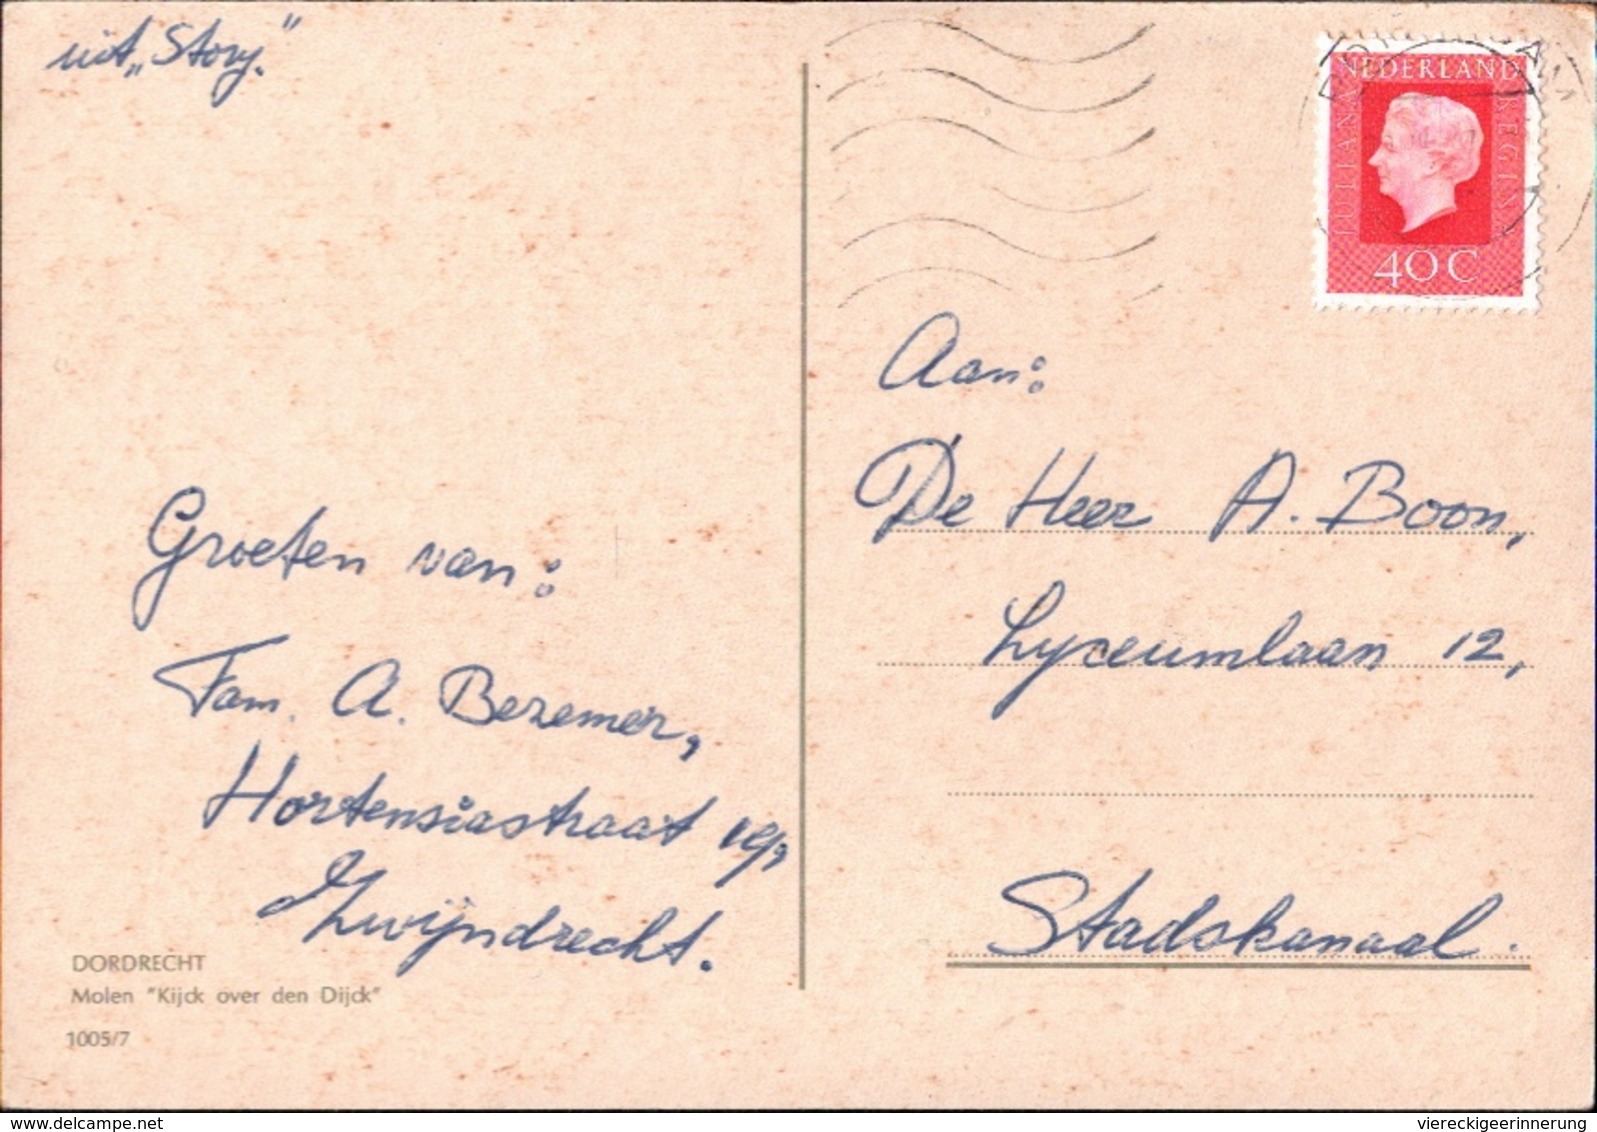 uit „Story."
Groeten van:
Fam. A. Bezemer,
Hortensiastraat
Zwijndrecht.
DORDRECHT
Molen "Kijck over den Dijck"
1005/7
NEDERLAND
JULIANA REGINA
40 C
Aan:
De Heer A. Boon,
Lyceumlaan 12,
Stadskanaal.
delcampe.net
viereckigeerinnerung